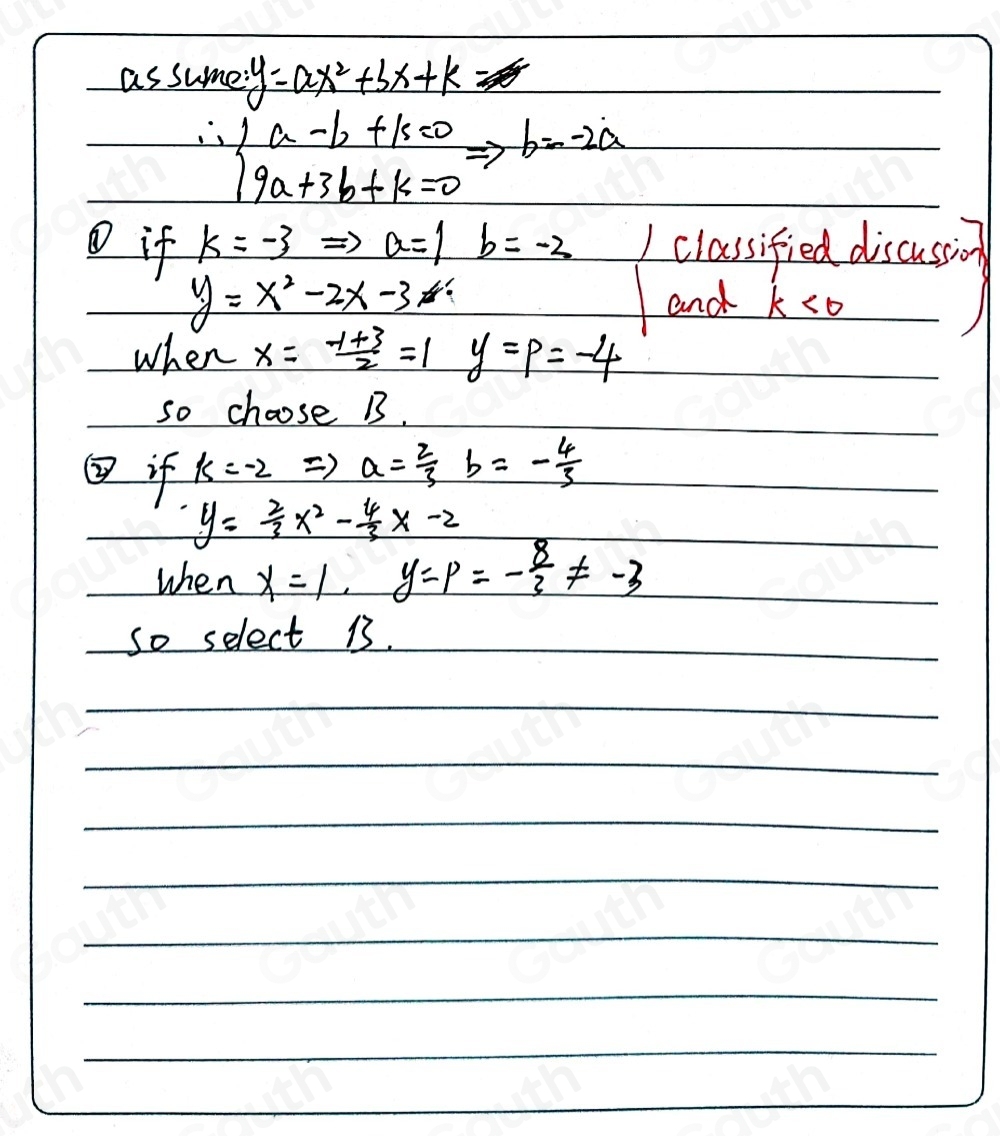 assume: y = ax² + bx + k
∴ { a - b + k = 0
9a + 3b + k = 0 ⇒ b = -2a
① if k = -3 ⇒ a = 1 b = -2
y = x² - 2x - 3
{ classified discussion
and k < 0 }
when x = \frac{-1+3}{2} = 1 y = p = -4
so choose B.
② if k = -2 ⇒ a = \frac{2}{3} b = -\frac{4}{3}
y = \frac{2}{3}x² - \frac{4}{3}x - 2
when x = 1. y = p = -\frac{8}{3} ≠ -3
so select B.
Gauth